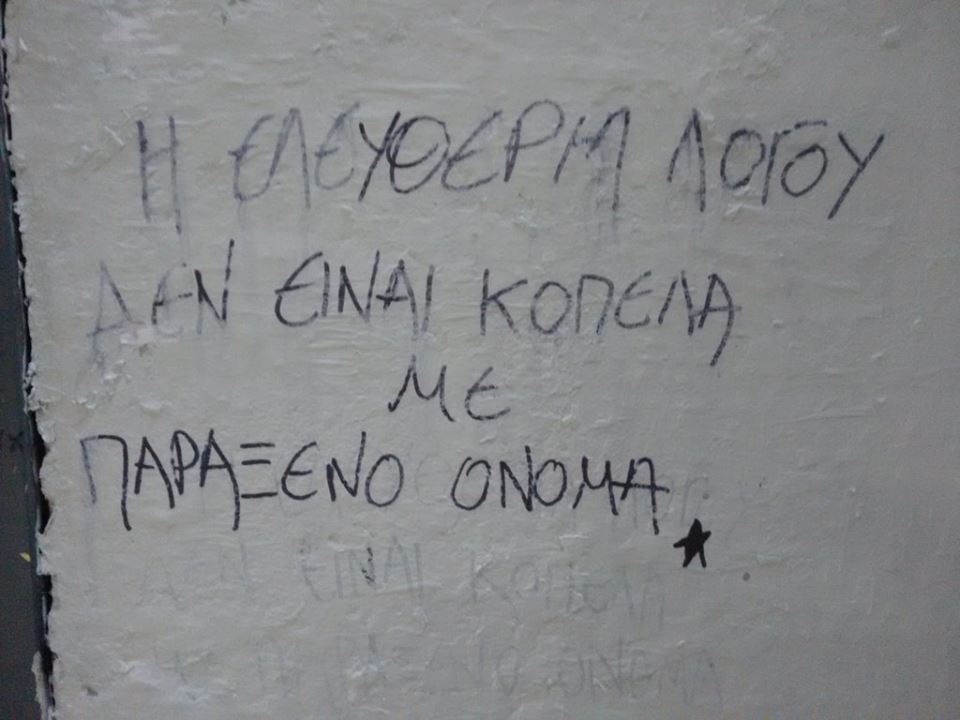 Η ΕΛΕΥΘΕΡΙΑ ΛΟΓΟΥ
ΔΕΝ ΕΙΝΑΙ ΚΟΠΕΛΑ
ΜΕ
ΠΑΡΑΞΕΝΟ ΟΝΟΜΑ
ΔΕΝ ΕΙΝΑΙ ΚΟΠΕΛΑ
ΠΑΡΑΞΕΝΟ ΟΝΟΜΑ